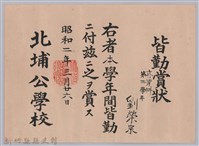 皆勤賞狀
第二學年
劉榮
右者本學年間皆勤
ニ付茲ニ之ヲ賞ス
昭和二年三月廿六日
北埔公學校